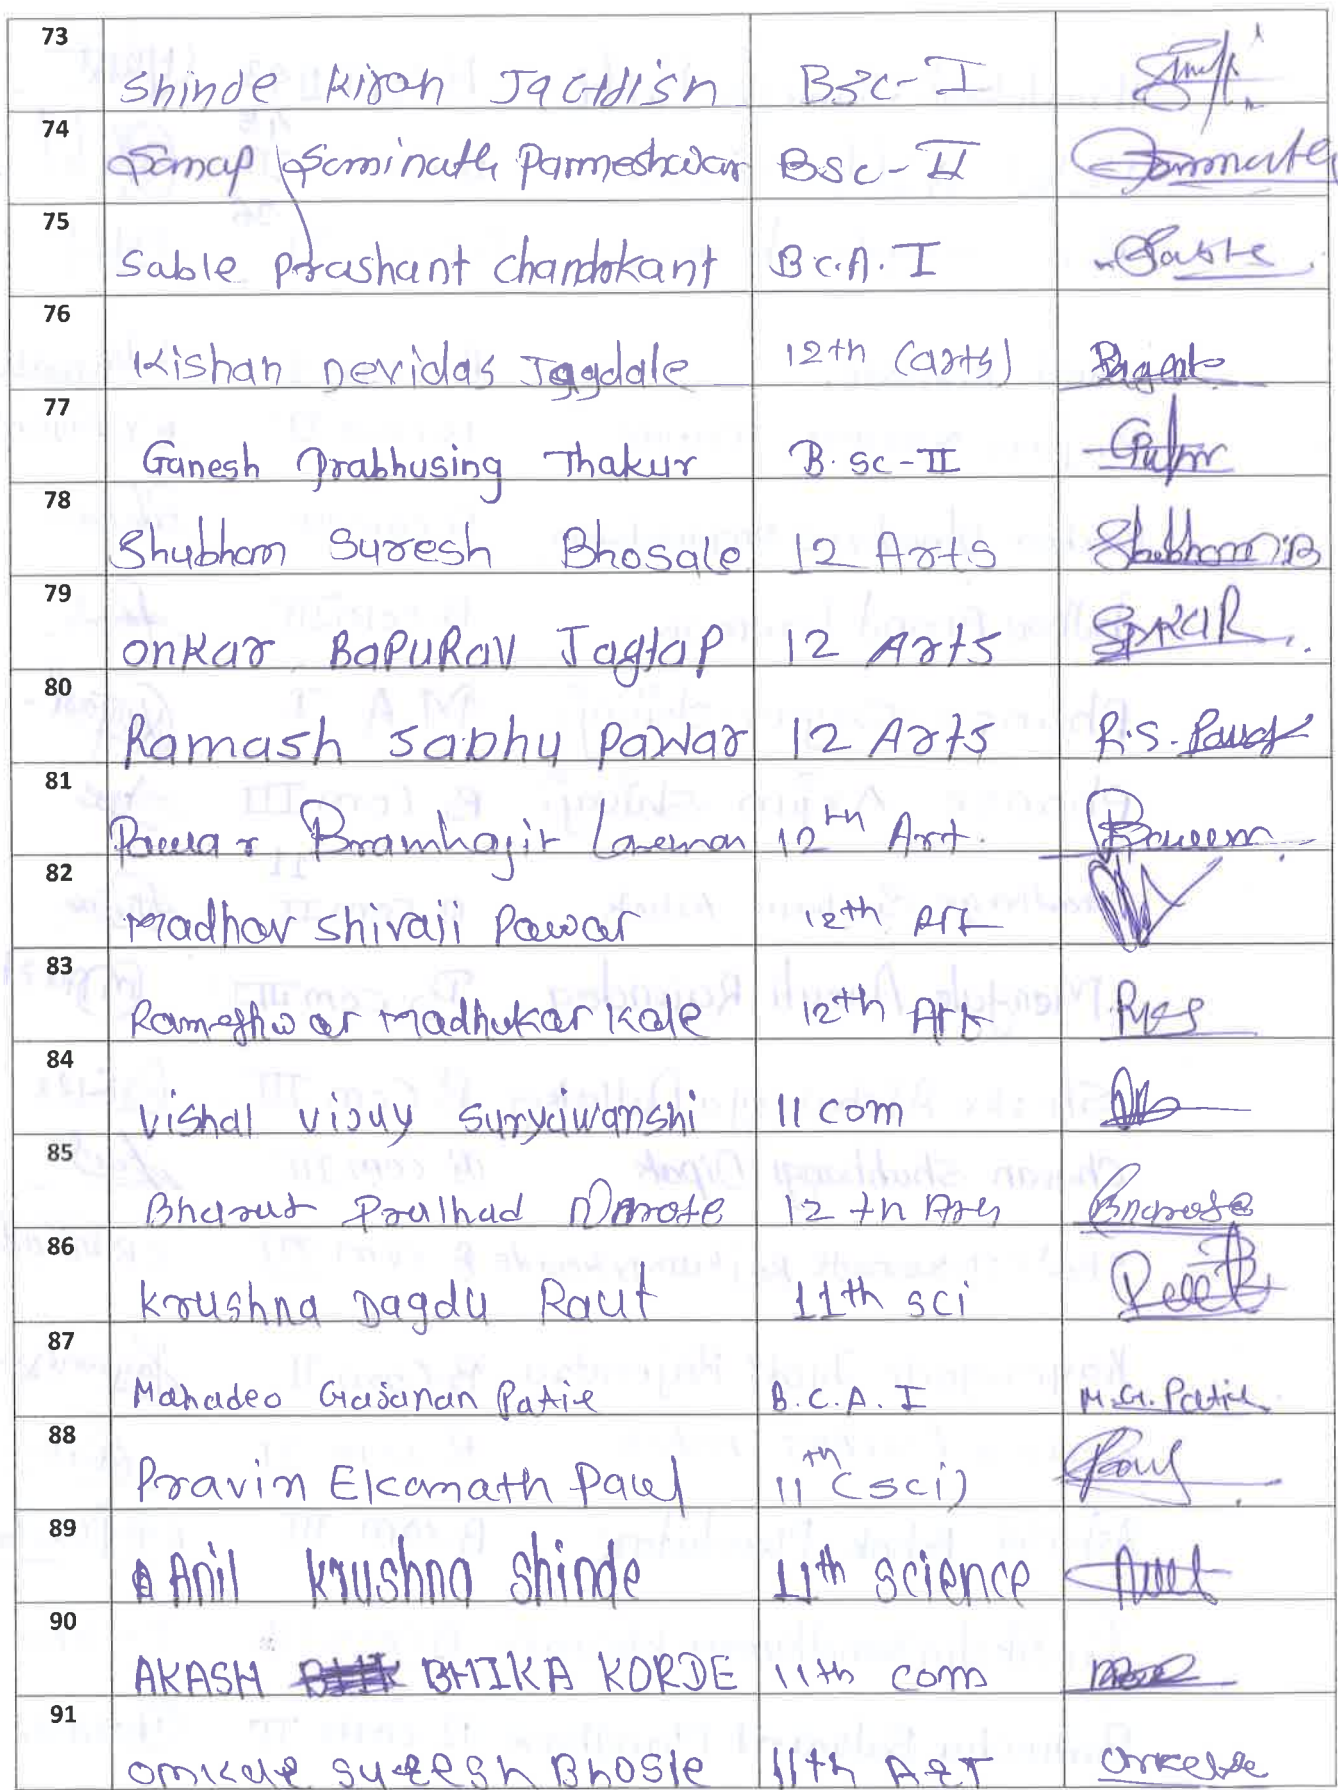 73 Shinde Kiran Jagdish BSc-I
74 Somap Sominath Parmeshwar BSc-II
75 Sable Prashant Chandrkant B.C.A. I Sable
76 Kishan Devidas Jagdale 12th (arts)
77 Ganesh Prabhusing Thakur B.Sc-II
78 Shubham Suresh Bhosale 12 Arts Shubham.B
79 Onkar BapuRav Jagtap 12 Arts
80 Ramash Sabhu Pawar 12 Arts R.S.
81 Pawar Bramhajit 12th Art.
82 Madhav Shivaji Pawar 12th Art
83 Rameshwar Madhukar Kale 12th Art
84 Vishal Vijay Suryawanshi 11 com
85 Bharat Pralhad 12th
86 Krushna Dagdu Raut 11th sci
87 Mahadeo Gajanan Patil B.C.A. I M.G. Patil
88 Pravin Ekanath 11th (sci)
89 Anil Krushna Shinde 11th science
90 AKASH BHIKA KORDE 11th com
91 Omkar Suresh Bhosle 11th ART